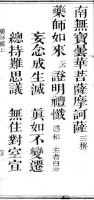 南無寶曇華菩薩摩訶薩三稱
藥師如來云云證明禮懺
妄念成生滅　真如不變遷
總持難思議　無住對空宣